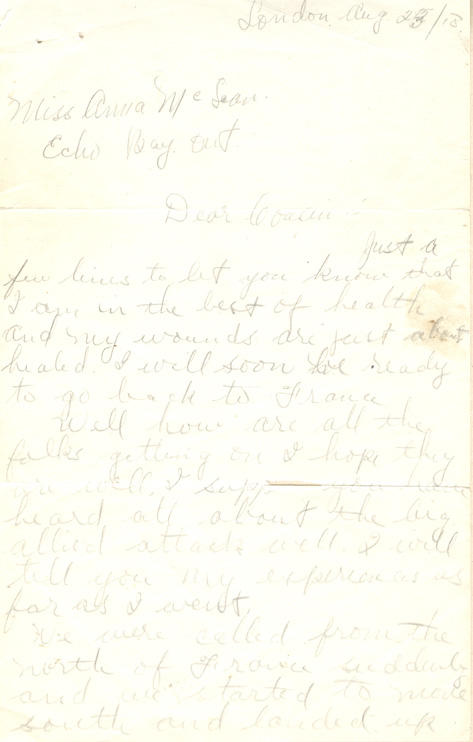 London Aug 25/18
Miss Anna Mc Lean.
Echo Bay. Ont
Dear Cousin :-
Just a
few lines to let you know that
I am in the best of health
and my wounds are just about
healed. I will soon be ready
to go back to France
Well how are all the
folks getting on I hope they
are well. I supp you have
heard all about the big
allied attack well. I will
tell you my experiences as
far as I went.
We were called from the
north of France suddenly
and we started to move
south and landed up.